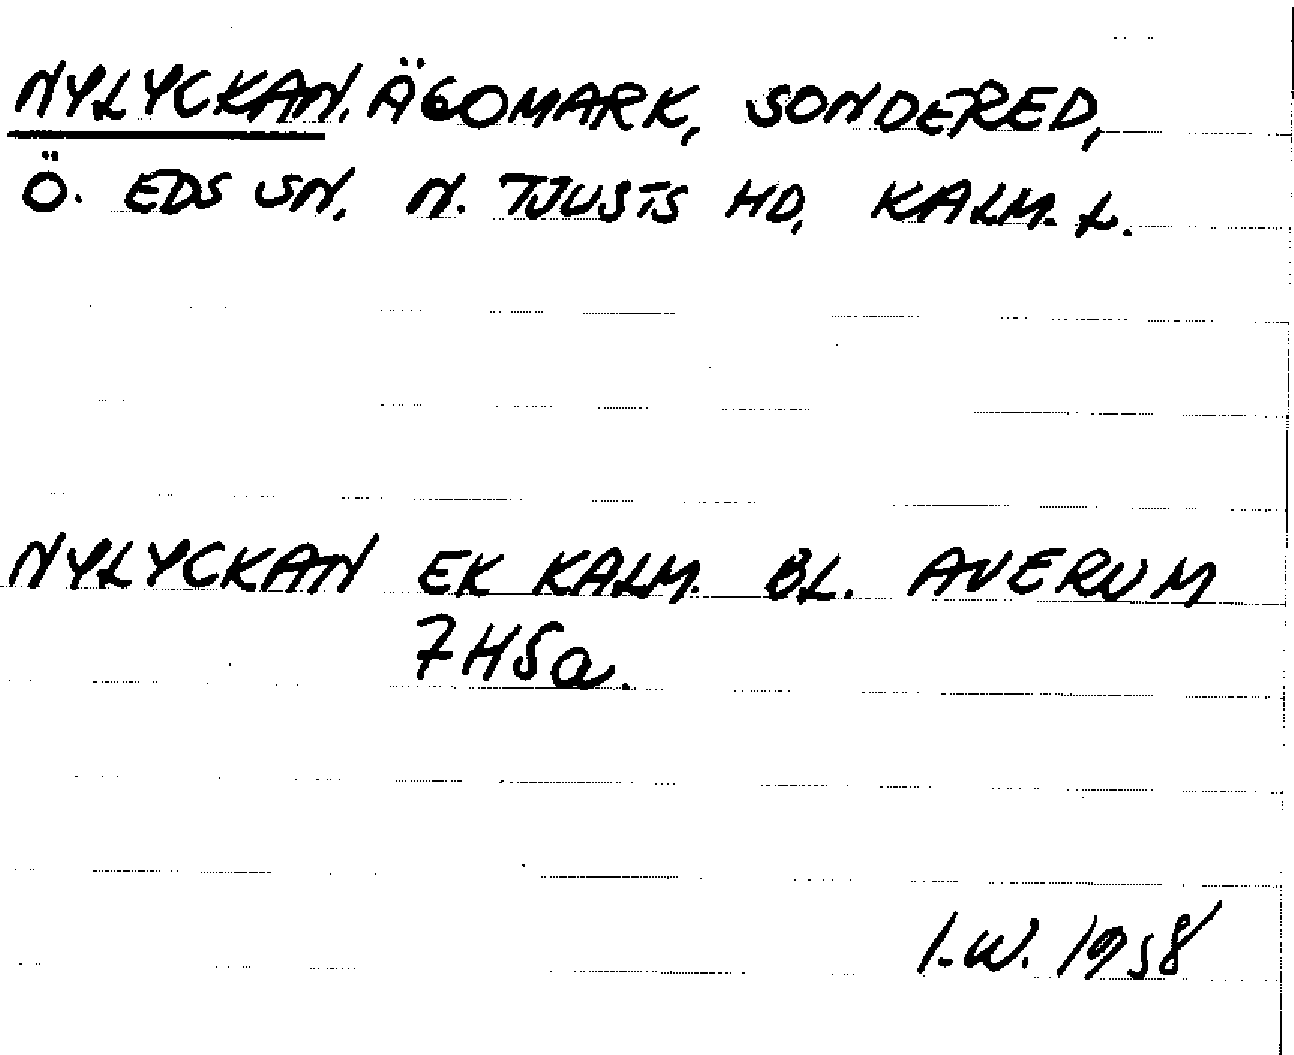 NYLYCKAN. ÄGOMARK, SONDERED,
Ö. EDS SN, N. TJUSTS HD, KALM. L.
NYLYCKAN EK KALM. BL. AVERUM
7H5a.
I.W. 1958